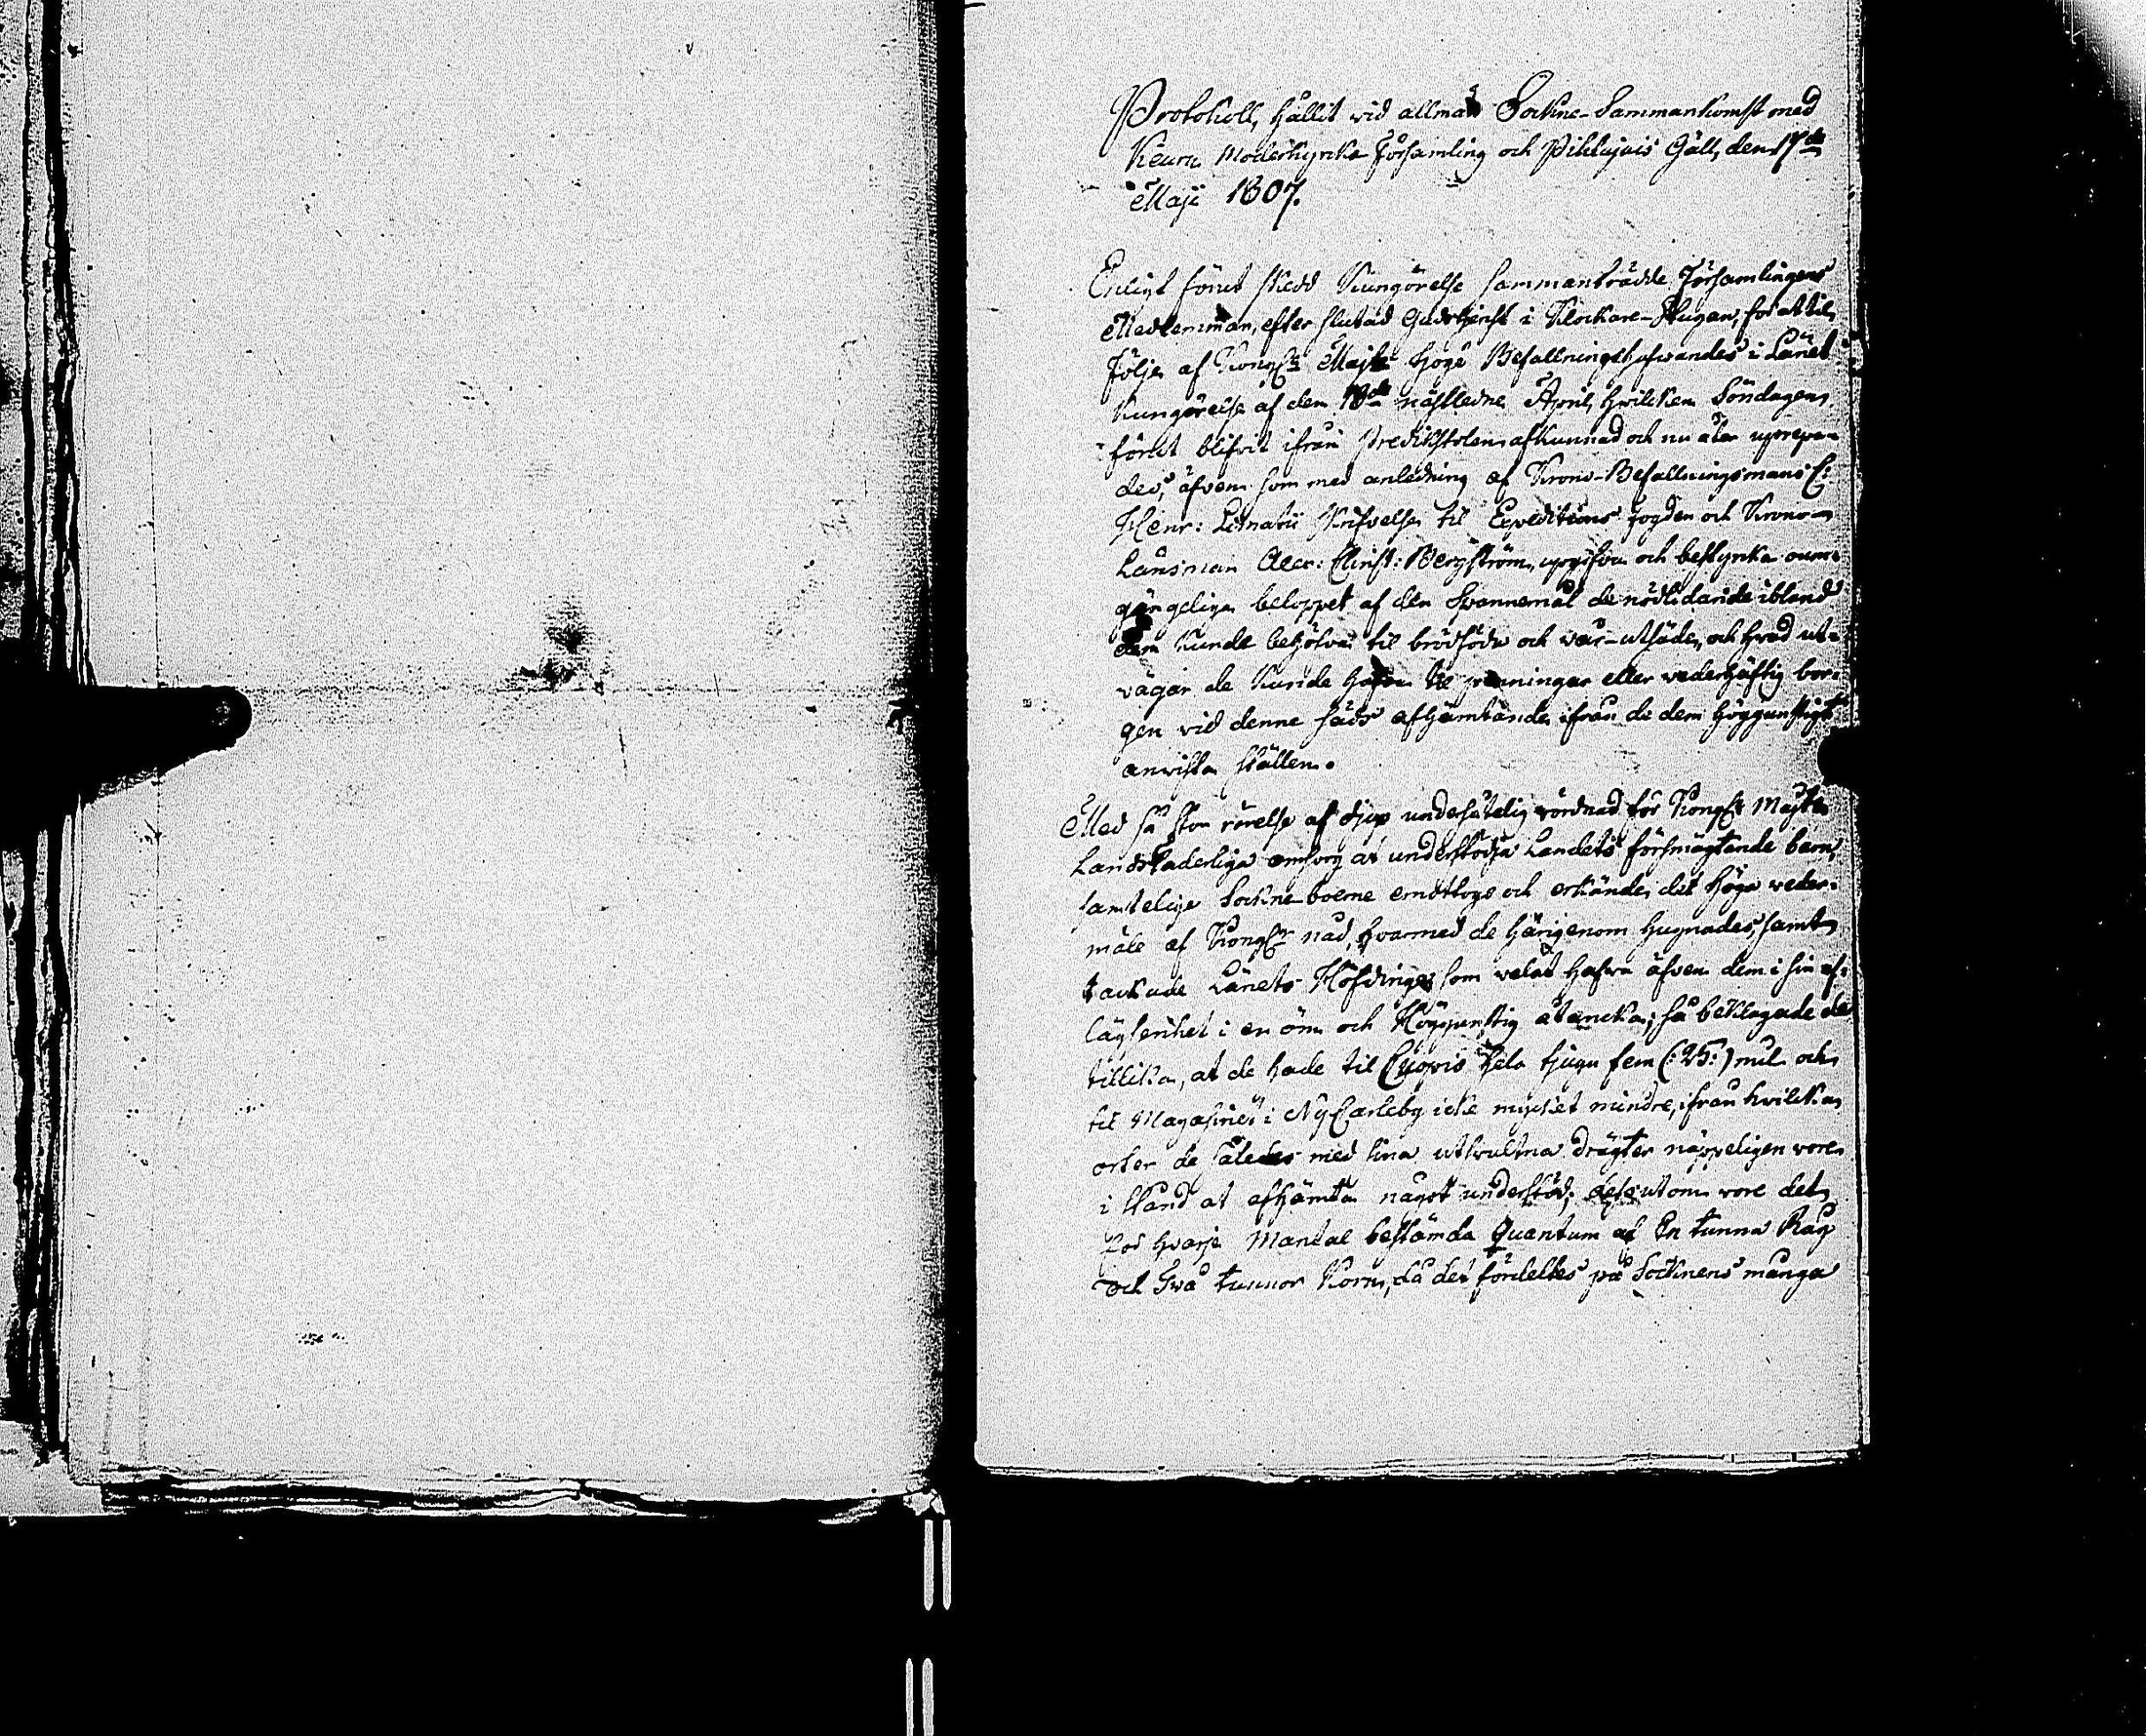 Protokoll, hållit vid allmän Sockne-Sammankomst med
Keuru Moderkyrko Församling och Pihlajavis Gäll, den 17de
Maji 1807.
Enligt förut skedd Kungörelse sammanträdde Församlingens
Medlemmar, efter slutad Gudstjenst i Klockare-Stugan, för at til
följe af Kongl: Majts Höge Befallningshafwandes i Länet
Kungörelse af den 18de nästledne April, hwilken Söndagen
förut blifvit ifrån Predikstolen afkunnad och nu åter uprepa-
des, äfven som med anledning af Krono-Befallningsmans C:
Henr: Limatii skrifvelse til Expeditions fogden och Krono-
Länsman Alex: Christ: Bergström, upgifva och bestyrka oum-
gängeliga beloppet af den Spannemål de nödlidande ibland
dem kunde behöfva til brödföda och vår-utsäde, och hvad ut-
vägar de kunde hafva til penningar eller vederhäftig bor-
gen vid denne säds afhämtande ifrån de dem höggunstigt
anviste ställen.
Med så stor rörelse af djup undersåtelig vördnad för Kongl: Majts
Landsfaderliga omsorg at understödja Landets försmägtande barn,
samtelige Sockneboerne emottogo och erkände det höga veder-
mäle af Kongl: nåd, hvarmed de härigenom hugnades, samt
tackade Länets Höfdinge, som velat hafva äfven dem i sin af-
lägsenhet i en öm och Höggunstig åtancka; så beklagade de
tillika, at de hade til Cuopio hela tjugu fem (:25:) mil och
til Magasinet i NyCarleby icke mycket mindre, ifrån hvilka
orter de således med sina utsvultna dragter näppeligen vore
i stånd at afhämta något understöd; dessutom vore det
för hvarje Mantal bestämda Quantum af En tunna Råg
och Två tunnor Korn, då det fördeltes på Socknens många